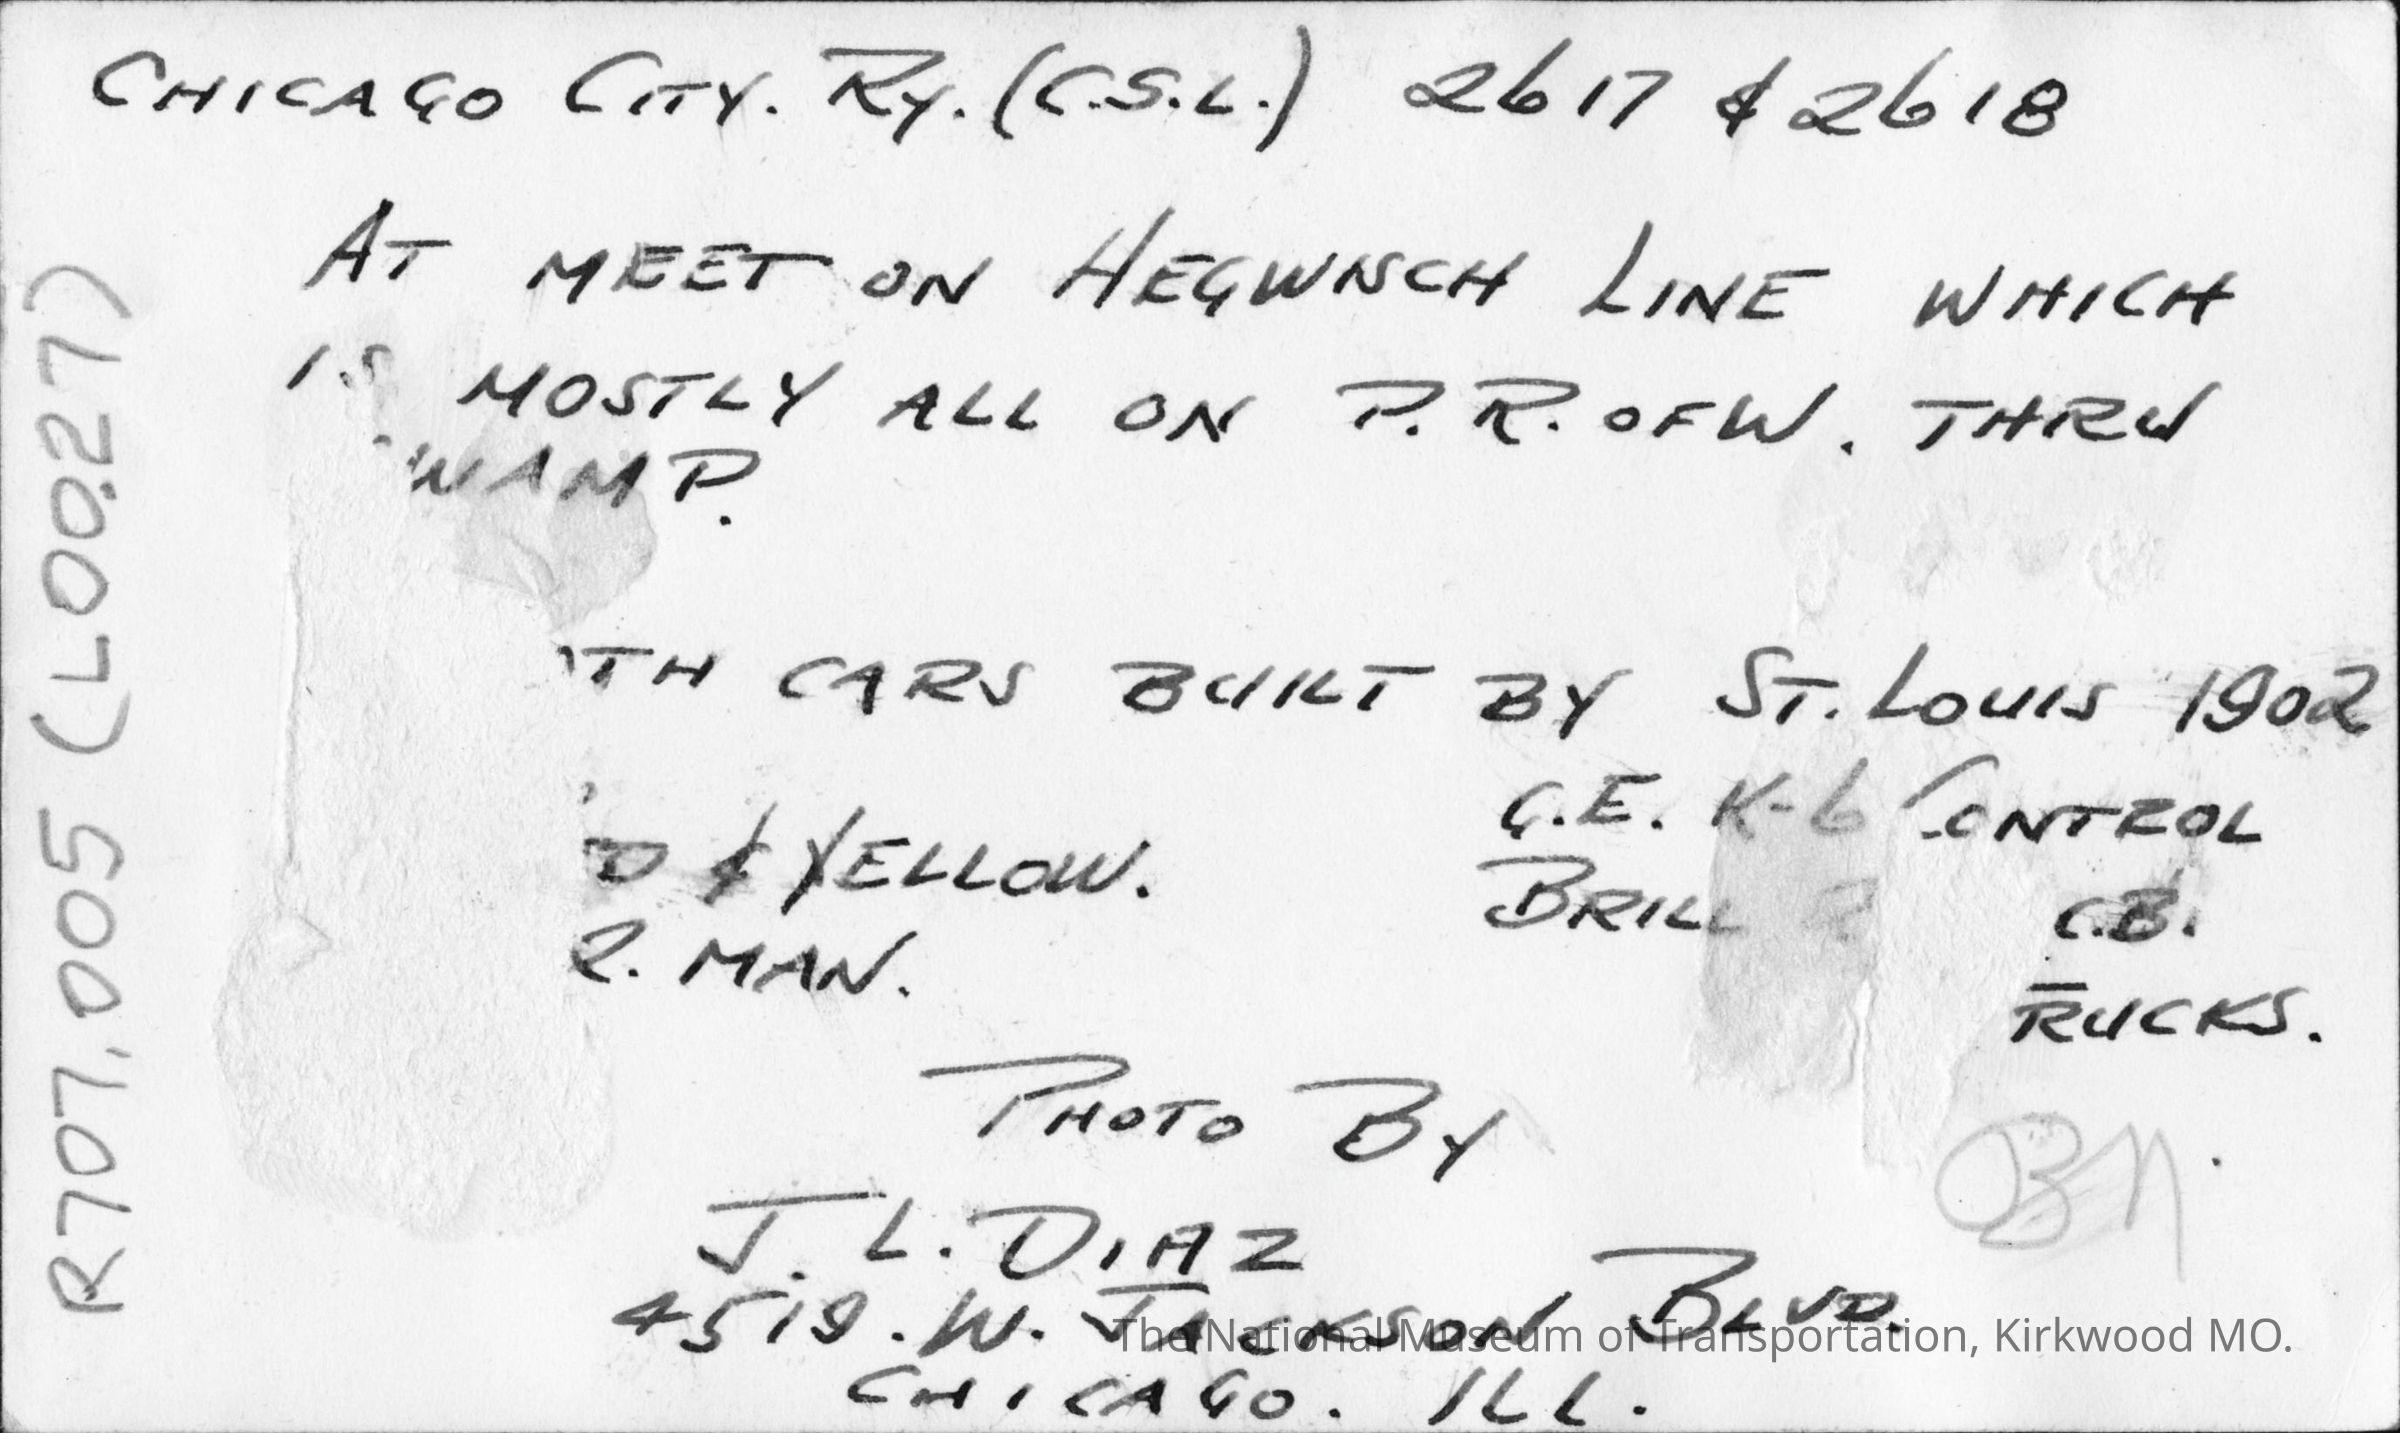 CHICAGO CITY. RY. (C.S.L.) 2617 & 2618
AT MEET ON HEGWISCH LINE WHICH
IS MOSTLY ALL ON P.R. OF W. THRU
WAMP.
TH CARS BUILT BY ST. LOUIS 1902
G.E. K-6 CONTROL
D & YELLOW.
BRILL C.B.
2. MAN.
RUCKS.
PHOTO BY
J. L. DIAZ
4519. W. JACKSON BLVD.
CHICAGO. ILL.
R707.005 (L0027)
The National Museum of Transportation, Kirkwood MO.